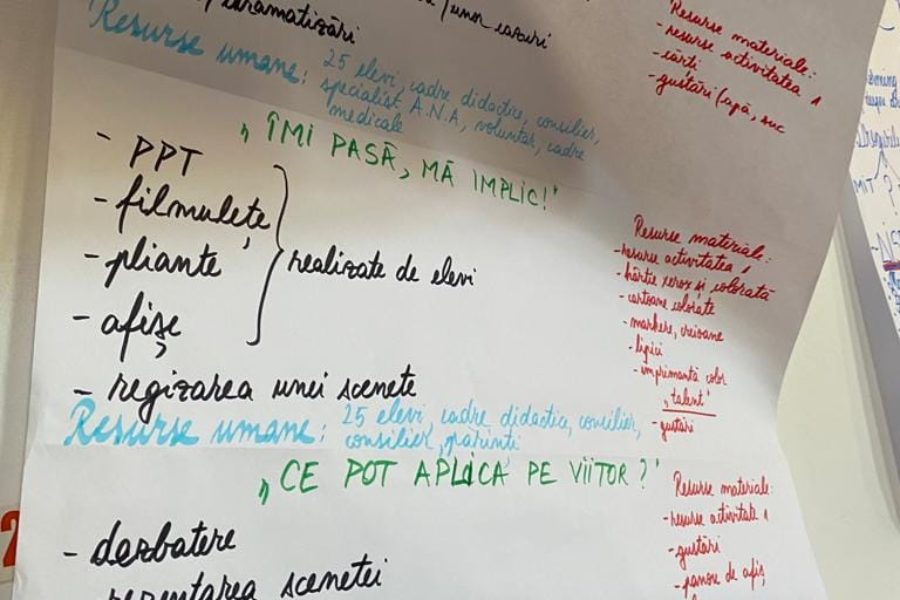 /dramatizări
/unor cazuri
Resurse umane: 25 elevi, cadre didactice, consilier,
specialist A.N.A, voluntar, cadre
medicale
Resurse materiale:
- resurse activitatea 1
- cărți
- gustări/apă, suc
„ÎMI PASĂ, MĂ IMPLIC!”
- PPT
- filmulețe
- pliante
- afișe
realizate de elevi
- regizarea unei scenete
Resurse umane: 25 elevi, cadre didactice, consilier,
consilier, părinți
Resurse materiale:
- resurse activitatea 1
- hârtie xerox și colorată
- cartoane colorate
- markere, creioane
- lipici
- imprimantă color
„talent”
- gustări
„CE POT APLICA PE VIITOR?”
- dezbatere
scenetei
Resurse materiale:
- resurse activitate 1
- gustări
- panou de afiș